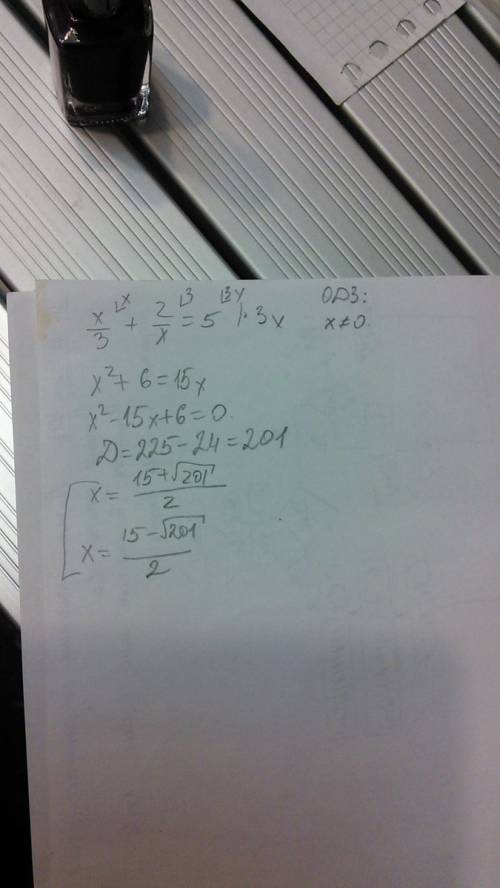 x/3 ⌊x + 2/x ⌊3 = 5 ⌊3x |·3x ОДЗ:
x≠0
x² + 6 = 15x
x² - 15x + 6 = 0.
D = 225 - 24 = 201
[ x = (15 + √201)/2
x = (15 - √201)/2